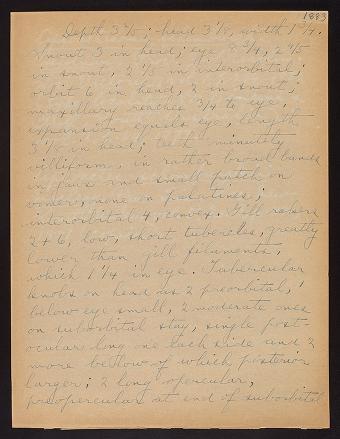 1883
Depth 3 2/5; head 3 1/8, width 1 3/4.
Snout 3 in head; eye 8 3/4, 2 4/5
in snout, 2 1/5 in interorbital;
orbit 6 in head, 2 in snout;
maxillary reaches 3/4 to eye,
expansion equals eye, length
3 1/8 in head; teeth minutely
villiform, in rather broad bands
in jaws and small patch on
vomer, none on palatines;
interorbital 4, convex. Gill rakers
2 + 6, low, short tubercles, greatly
lower than gill filaments,
which 1 1/4 in eye. Tubercular
knobs on head as 2 preorbital, 1
below eye small, 2 moderate ones
on suborbital stay, single post-
ocular long one each side and 2
more below of which posterior
larger; 2 long opercular,
preopercular at end of suborbital